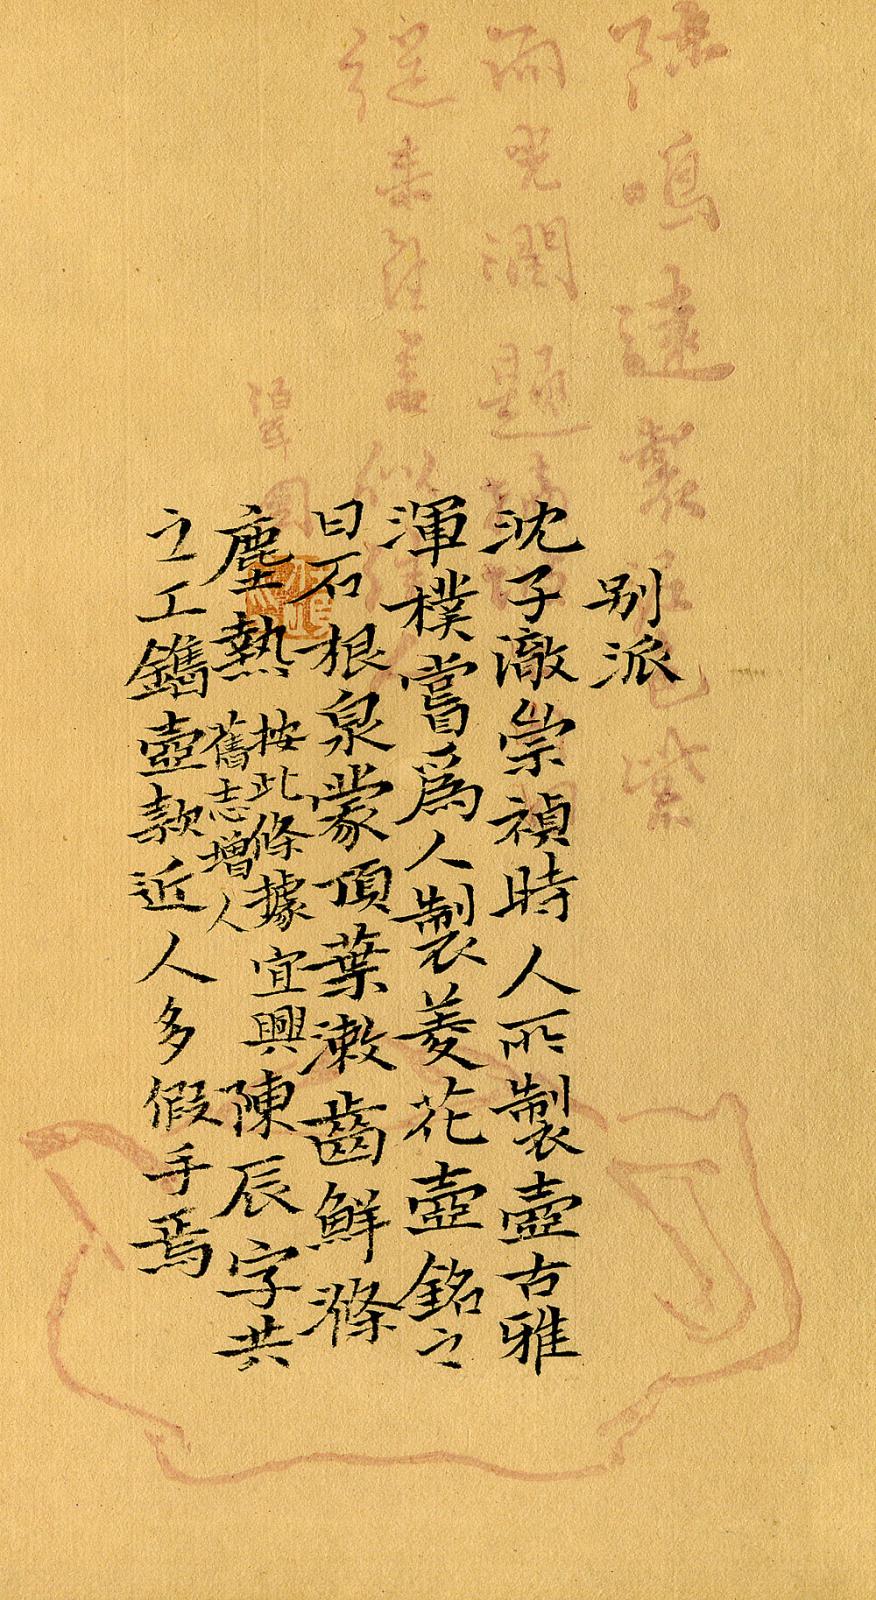 陳鳴遠製
色紫
而光潤題
别派
沈子澈崇禎時人所製壺古雅
渾樸嘗爲人製菱花壺銘之
曰石根泉蒙頂葉漱齒鮮滌
塵熱
按此條據宜興
舊志增人
陳辰字共
之工鐫壺款近人多假手焉